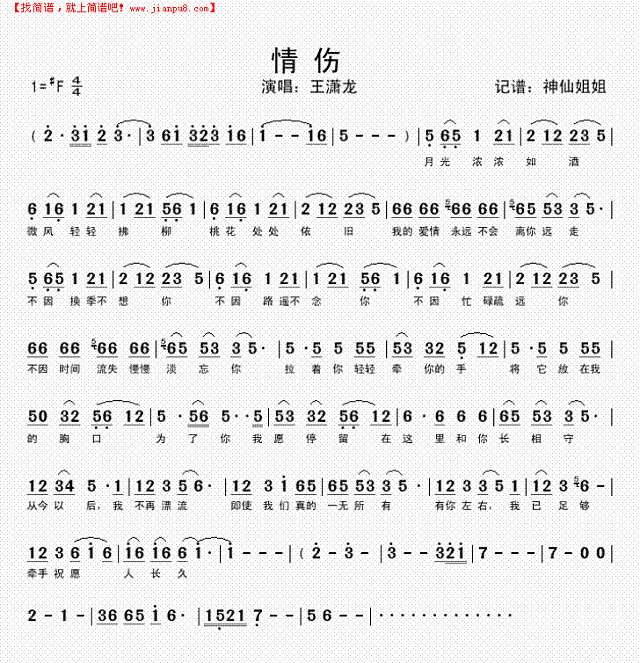 【找简谱，就上简谱吧！www.jianpu8.com】
情 伤
1=#F 4/4 演唱：王潇龙 记谱：神仙姐姐
( 2· 31 2 3· | 3 61 323 16 | 1 - - 16 | 5 - - - ) | 5 65 1 21 | 2 12 23 5 |
月光 浓浓 如 酒
6 16 1 21 | 1 21 56 1 | 6 16 1 21 | 2 12 23 5 | 66 66 66 66 | 65 53 3 5· |
微风 轻轻 拂 柳 桃花 处处 依 旧 我的 爱情 永远 不会 离你 远 走
5 65 1 21 | 2 12 23 5 | 6 16 1 21 | 2 12 56 1 | 6 16 1 21 | 2 12 23 5 |
不因 换季不 想 你 不因 路遥不 念 你 不因 忙 碌疏 远 你
66 66 66 66 | 65 53 3 5· | 5· 5 5 55 | 53 32 5 12 | 5· 5 5 55 |
不因 时间 流失 慢慢 淡 忘 你 拉 着 你 轻轻 牵 你的 手 将 它 放在我
50 32 56 12 | 5· 56 5·5 | 53 32 56 12 | 6· 6 6 6 | 65 53 3 5· |
的 胸 口 为 了 你 我 愿 停 留 在 这 里 和 你 长 相 守
12 34 5·1 | 12 3 5 6· | 12 3 1 65 | 65 53 3 5· | 12 3 5 21 | 12 3 6 - |
从今 以 后，我 不再 漂流 即使 我 们 真的 一无 所 有 有你 左右，我 已 足 够
12 3 6 1 6 | 16 16 6 1· | 1 - - - | ( 2 - 3 - | 3 - - - | 3 - 321 | 7 - - - | 7 - 0 0 |
牵手 祝愿 人 长 久
2 - 1 - | 36 65 1 6· | 1521 7 - | 5 6 - - | · · · · · · · · · · · · ·